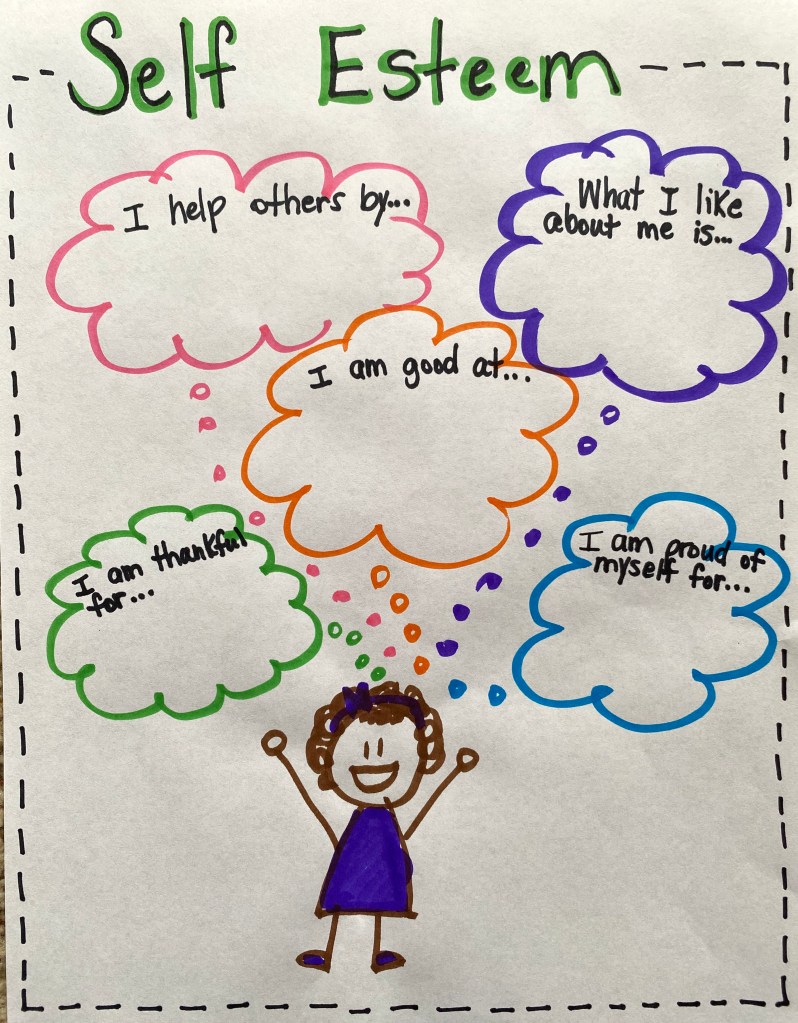 Self Esteem
I help others by...
What I like
about me is...
I am good at...
I am thankful
for...
I am proud of
myself for...